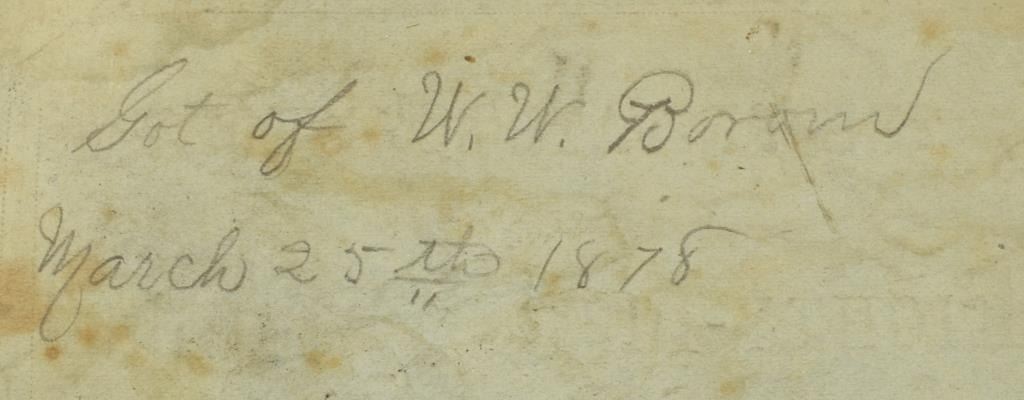 Got of W. W. Borown
March 25th 1878